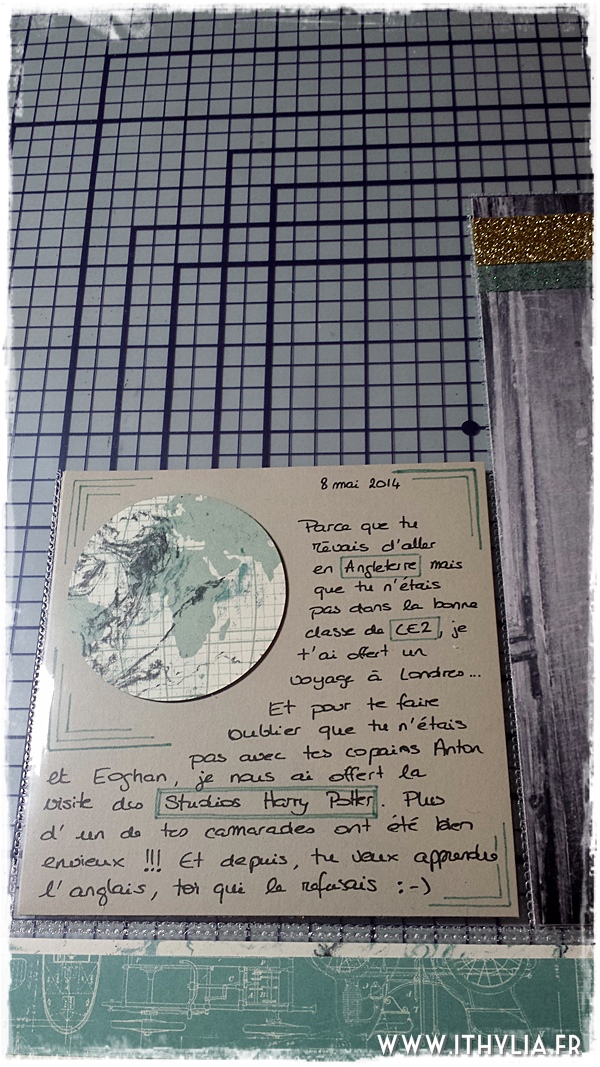 8 mai 2014
Parce que tu
rêvais d'aller
en Angleterre mais
que tu n'étais
pas dans la bonne
classe de CE2, je
t'ai offert un
voyage à Londres...
Et pour te faire
oublier que tu n'étais
pas avec tes copains Anton
et Eoghan, je nous ai offert la
visite des Studios Harry Potter. Plus
d'un de tes camarades ont été bien
envieux !!! Et depuis, tu veux apprendre
l'anglais, toi qui le refusais :-)
WWW.ITHYLIA.FR